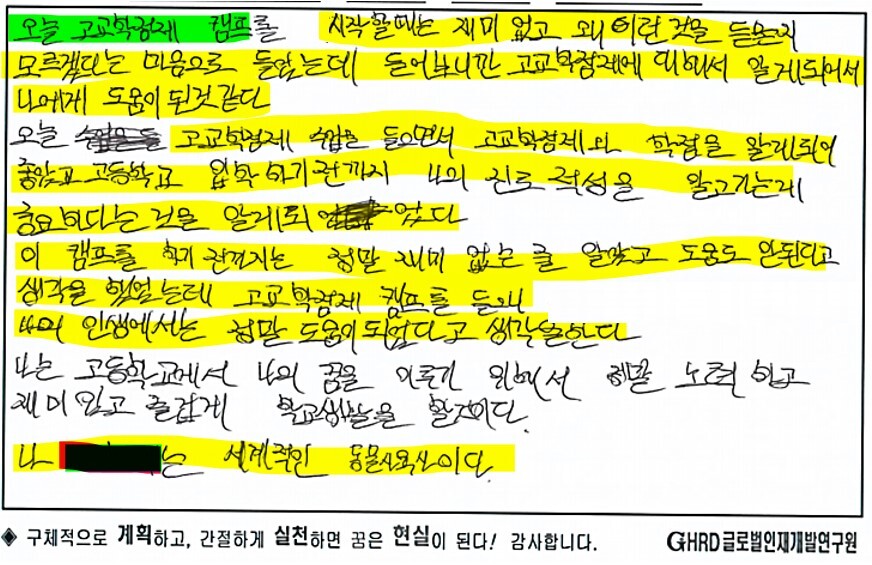 오늘 고교학점제 캠프를 시작할때는 재미 없고 왜 이런 것을 듣는지
모르겠다는 마음으로 들었는데 들어보니깐 고교학점제에 대해서 알게되어서
나에게 도움이 된것 같다
오늘 고교학점제 수업을 들으면서 고교학점제와 학점을 알게되어
좋았고 고등학교 입학 하기 전까지 나의 진로 적성을 알고가는게
중요하다는 것을 알게되 었다
이 캠프를 하기 전까지는 정말 재미 없는 줄 알았고 도움도 안된다고
생각을 했었는데 고교학점제 캠프를 들으니
나의 인생에서는 정말 도움이 되었다고 생각을한다
나는 고등학교에서 나의 꿈을 이루기 위해서 정말 노력 하고
재미 있고 즐겁게 학교생활을 할것이다.
나 는 세계적인 동물사육사이다.
◈ 구체적으로 계획하고, 간절하게 실천하면 꿈은 현실이 된다! 감사합니다. GHRD글로벌인재개발연구원